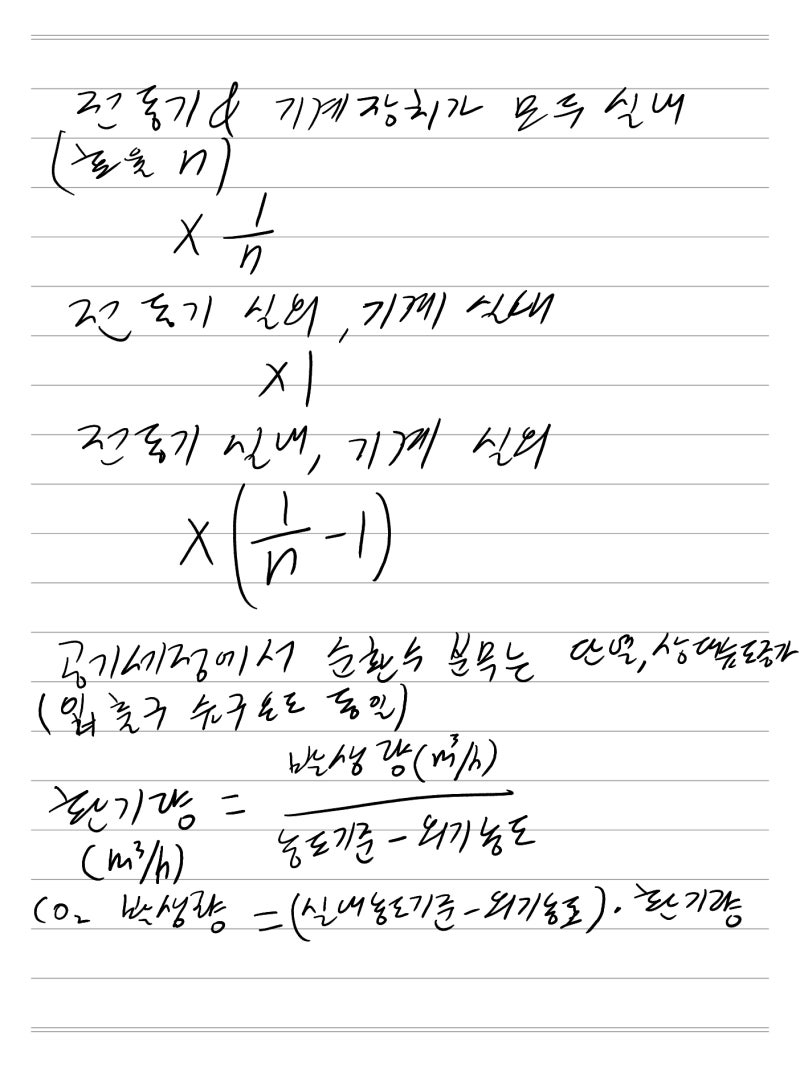 전동기 & 기계장치가 모두 실내
(효율 n)
× 1/n
전동기 실외, 기계 실내
×1
전동기 실내, 기계 실외
×(1/n - 1)
공기세정에서 순환수 분무는 단열, 상대습도증가
(입출구 습구온도 동일)
환기량 (m³/h) = 발생량(m³/h) / 농도기준 - 외기농도
CO₂ 발생량 = (실내농도기준 - 외기농도)·환기량